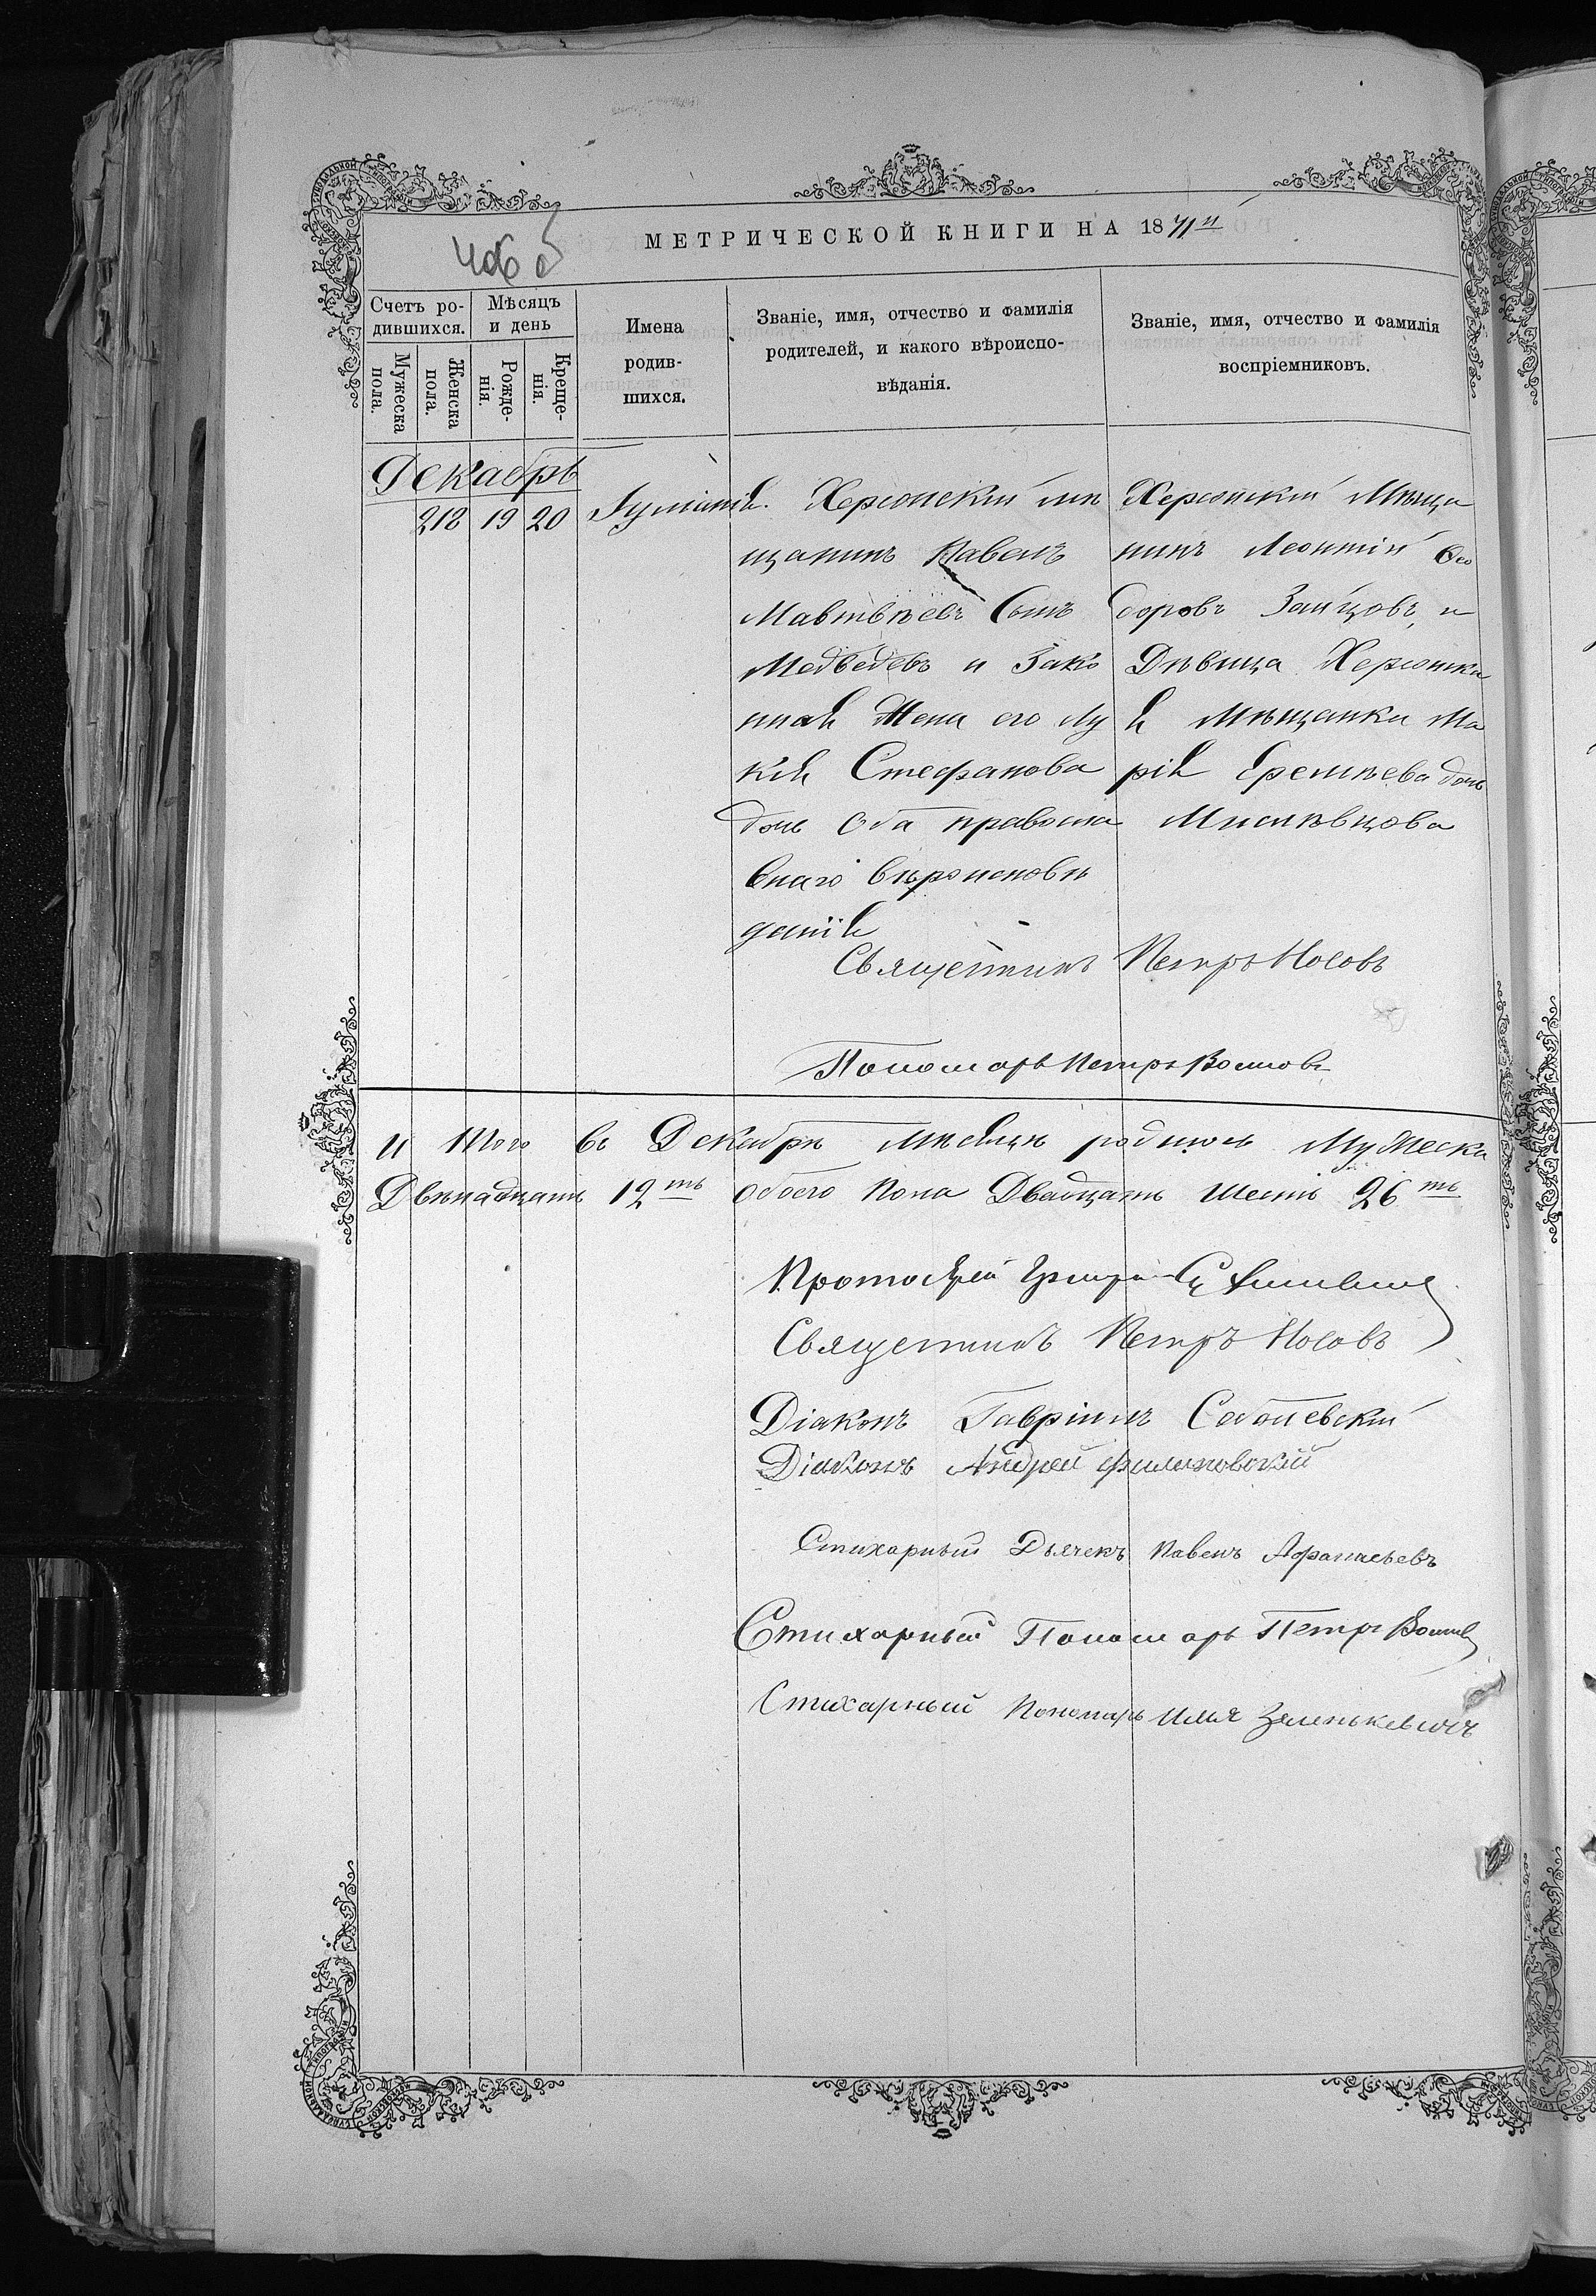 МЕТРИЧЕСКОЙ КНИГИ НА 1871й
Счетъ ро-
дившихся.
Мужеска
пола.
Женска
пола.
Мѣсяцъ
и день
Рожде-
нія.
Креще-
нія.
Имена
родив-
шихся.
Званіе, имя, отчество и фамилія
родителей, и какого вѣроиспо-
вѣданія.
Званіе, имя, отчество и фамилія
воспріемниковъ.
Декабрь
218 19 20
Іуліанія.
Херсонскій мѣ
щанинъ Павелъ
Мавтвѣевъ Сынъ
Медведевъ и Зако
нная Жена его Лу
кія Стефанова
дочь Оба правосла
внаго вѣроисповѣ
данія
Херсонскій Мѣща
нинъ Леонтій Ѳео
доровъ Зайцовъ, и
Дѣвица Херсонска
я Мѣщанка Ма
рія Еремѣева дочь
Священникъ Петръ Носовъ
Пономарь Петръ Воиновъ
И того въ Декабрѣ мѣсяцѣ родилось Мужеска
Двѣнадцать 12ть обоего пола Двадцать Шесть 26ть
Священникъ Петръ Носовъ
Діаконъ Гавріилъ Соболевскій
Діаконъ Андрей Филиповскій
Стихарный Дьячекъ Павелъ Афанасьевъ
Стихарный Пономарь Петръ Воиновъ
Стихарный Пономарь Илья Зеленькевичъ